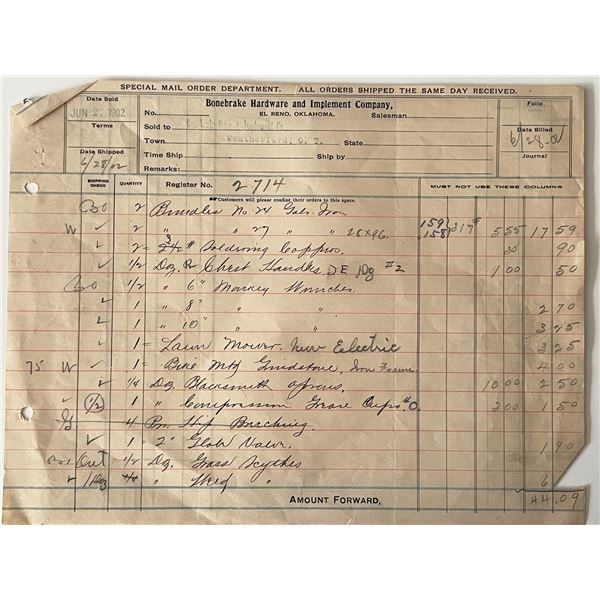 SPECIAL MAIL ORDER DEPARTMENT. ALL ORDERS SHIPPED THE SAME DAY RECEIVED.
Date Sold
JUN 2, 1902
Terms
Date Shipped
6/28/02
Bonebrake Hardware and Implement Company,
EL RENO, OKLAHOMA.
No. Salesman
Sold to
Town Weatherford, O. T. State
Time Ship Ship by
Remarks:
Folio
Date Billed
6/28-02
Journal
SHIPPING CHECK QUANTITY Register No. 2714 MUST NOT USE THESE COLUMNS
Customers will please confine their orders to this space.
2 Bundles No. 24 Galv. Iron
W ✓ 2 " " 27 " " 28x96 159 158 317# 5 55 17 59
✓ 2 = 3# Soldering Coppers 30 90
✓ 1/2 Doz. Pr Chest Handles DE #2 1 00 50
1/2 " 6" Monkey Wrenches
✓ 1 " 8" " " 2 70
✓ 1 " 10" " " 3 25
✓ 1 = Lawn Mower New Electric 3 25
75 W ✓ 1 = Grindstone, Iron Frame 4 00
✓ 1/4 Dz Blacksmith Aprons 10 00 2 50
✓ (1/2) 1 " Compression Grease Cups #0 3 00 1 50
4 Pr. Hip
✓ 1 2" Globe Valve 1 90
Out 1/2 Dz. Grass Scythes
✓ 1/4 " Weed " 6
AMOUNT FORWARD, 44.09